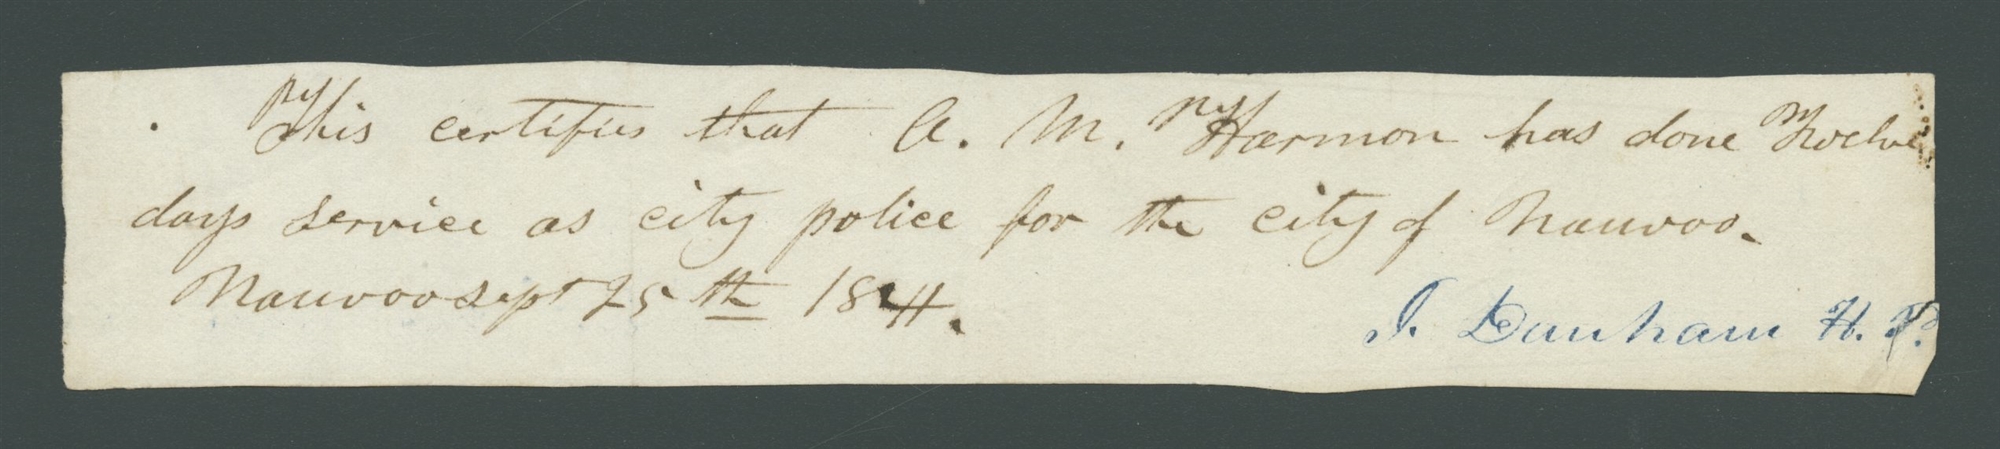 This certifies that A. M. Harmon has done Twelve
days service as city police for the city of Nauvoo.
Nauvoo sept 25th 1844.
J. Dunham H. P.